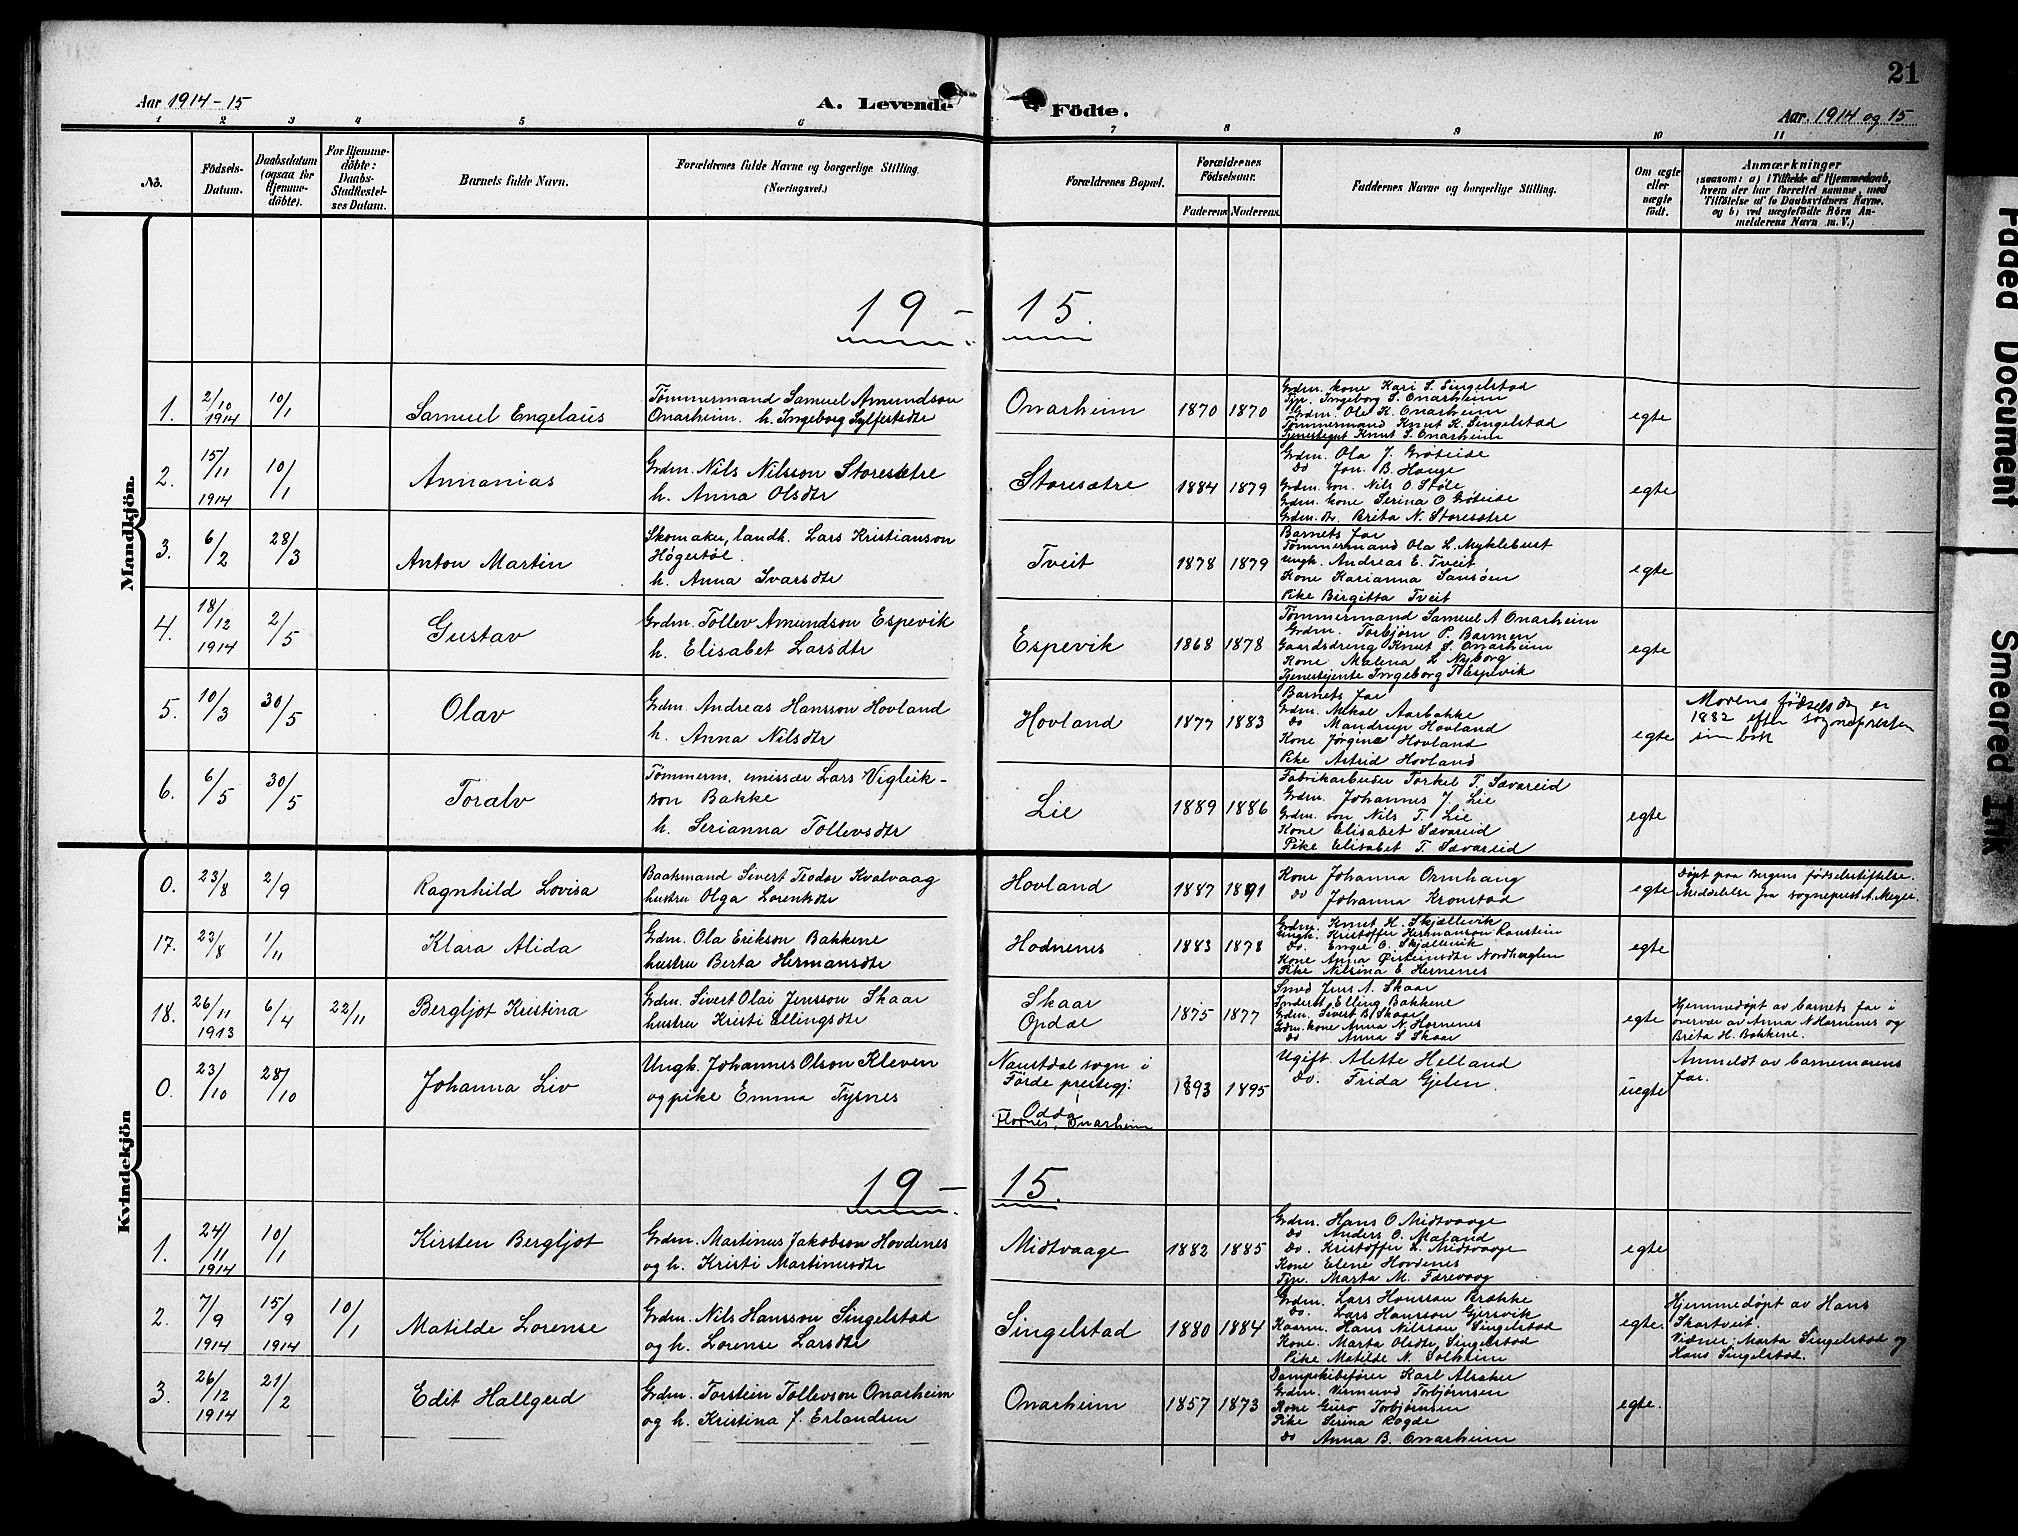 21
Aar 1914-15
A. Levende Födte.
Aar 1914 og 15
1 2 3 4 5 6 7 8 9 10 11
No.
Födsels-Datum.
Daabsdatum (ogsaa for Hjemme-döbte).
For Hjemme-döbte: Daabs-Stadfæstel-ses Datum.
Barnets fulde Navn.
Forældrenes fulde Navne og borgerlige Stilling.
(Næringsvei.)
Forældrenes Bopæl.
Forældrenes Födselsaar.
Faderens Moderens
Faddernes Navne og borgerlige Stilling.
Om ægte eller uægte födt.
Anmærkninger
(saasom: a) i Tilfælde af Hjemmedaab,
hvem der har forrettet samme, med
Tilföielse af to Daabsvidners Navne.
og b) ved uægtefödte Börn An-
melderens Navn m. V.)
Mandkjön.
19-15.
1. 2/10 1914 10/1 Samuel Engelaus
Tømmermand Samuel Amundson
Onarheim. h. Ingeborg Sylfestdtr
Onarheim 1870 1870
Grdm. kone Kari S. Singelstad
Tyr. Ingeborg S. Onarheim
Grdm. Ole K. Onarheim
Tømmermand Knut K. Singelstad
Tjenestegut Knut S. Onarheim
egte
2. 15/11 1914 10/1 Annanias
Grdm. Nils Nilsson Storesætre
h. Anna Olsdtr
Storesætre 1884 1879
Grdm. Ola J. Grøteide
do Jon. B. Hauge
Grdm. søn. Nils O. Støle
Grdm. kone Serina O. Grøteide
Grdm. dtr. Brita N. Storesætre
egte
3. 6/2 28/3 Anton Martin
Skomaker, landh. Lars Kristianson
Høgestøl.
h. Anna Ivarsdtr
Tveit 1878 1879
Barnets far
Tømmermand Ola L. Myklebust
Ungk. Andreas E. Tveit
Kone Karianna Sansøen
Pike Birgitta Tveit
egte
4. 18/12 1914 2/5 Gustav
Grdm. Tollev Amundson Espevik
h. Elisabet Larsdtr
Espevik 1868 1878
Tømmermand Samuel A Onarheim
Grdm. Torbjørn P. Barmen
Gaardsdreng Knut S. Onarheim
Kone Malena L Nyborg
Tjenestjente Ingeborg T Espevik
egte
5. 10/3 30/5 Olav
Grdm. Andreas Hansson Hovland
h. Anna Nilsdtr
Hovland 1877 1883
Barnets far
Grdm. Mikal Aarbakke
do Mandrup Hovland
Kone Jørgine Hovland
Pike Astrid Hovland
egte
Morens fødselsdag er
1882 efter sognepresten
sin bok
6. 6/5 30/5 Toralv
Tømmerm. emissær Lars Vigleik-
son Bakke
h. Serianna Tollevsdtr
Lie 1889 1886
Fabrikarbeider Torkel T. Sævareid
Grdm. Johannes J. Lie
Grdm. søn Nils T. Lie
Kone Elisabet Sævareid
Pike Elisabet T. Sævareid
egte
Kvindekjön
0. 23/8 2/9 Ragnhild Lovisa
Baatmand Sivert Teodor Kvalvaag
hustru Olga Lorentsdtr
Hovland 1887 1891
Kone Johanna Ormhaug
do Johanna Kronstad
egte
Døpt paa Bergens fødselsstiftelse.
Meddelelse fra sogneprest A. Meyer.
17. 23/8 1/11 Klara Alida
Grdm. Ola Erikson Bakkene
hustru Berta Hermansdtr
Hodnenes 1883 1878
Grdm. Knut H. Skjellevik
Ungk. Kristoffer Hermanson
Do. Engel O. Skjellevik
Kone Anna Østeinsdtr Nordhuglen
Pike Nilsina E. Hernenes
egte
18. 26/11 1913 6/4 22/11 Bergljot Kristina
Grdm. Sivert Olai Jensson Skaar
hustru Kristi Ellingsdtr
Skaar
Opdal
1875 1877
Smed Jens N. Skaar
Inderst Elling Bakkene
Grdm. Sivert B. Skaar
Grdm. kone Anna N. Hornenes
do Anna S Skaar
egte
Hjemmedøpt av barnets far i
overvær av Anna N Hornenes og
Brita H. Bakkene.
0. 23/10 28/10 Johanna Liv
Ungk. Johannes Olson Kleven
og pike Emma Tysnes
Naustdal sogn i
Førde prestegj.
Odda
Flornes, Onarheim
1893 1895
Ugift. Alette Helland
Do. Frida Gjelen.
uegte
Anmeldt av barnemorens
far.
19-15.
1. 24/11 1914 10/1 Kirsten Bergljot
Grdm. Martinus Jakobson Hovdenes
og h. Kristi Martinusdtr
Midtvaage 1882 1885
Grdm. Hans O Midtvaage
do Anders O. Maland
do. Kristoffer L. Midtvaage
Kone Elene Hovdenes
Tyr. Marta M. Færevaag
egte
2. 7/9 1914 15/9 1914 10/1 Matilde Lorense
Grdm. Nils Hansson Singelstad
og h. Lorense Larsdtr
Singelstad 1880 1884
Grdm. Lars Hansson Brække
Do. Lars Hansson Gjersvik
Kaarm. Hans Nilsson Singelstad
Kone. Marta Olsdtr Singelstad
Pike Matilde N. Solheim
egte.
Hjemmedøpt av Hans
Skartveit.
Vidner: Marta Singelstad og
Hans Singelstad.
3. 26/12 1914 21/2 Edit Hallgerd
Grdm. Torstein Tollevson Onarheim
og h. Kristina f. Erlandsen
Onarheim 1857 1873
Dampskibsfører Karl Alsaker
Grdm. Vermund Torbjørnsen
Kone Guro Torbjørnsen
Pike Serina Røgde
do Anna B. Onarheim
egte.
Faded Document
Smeared Ink